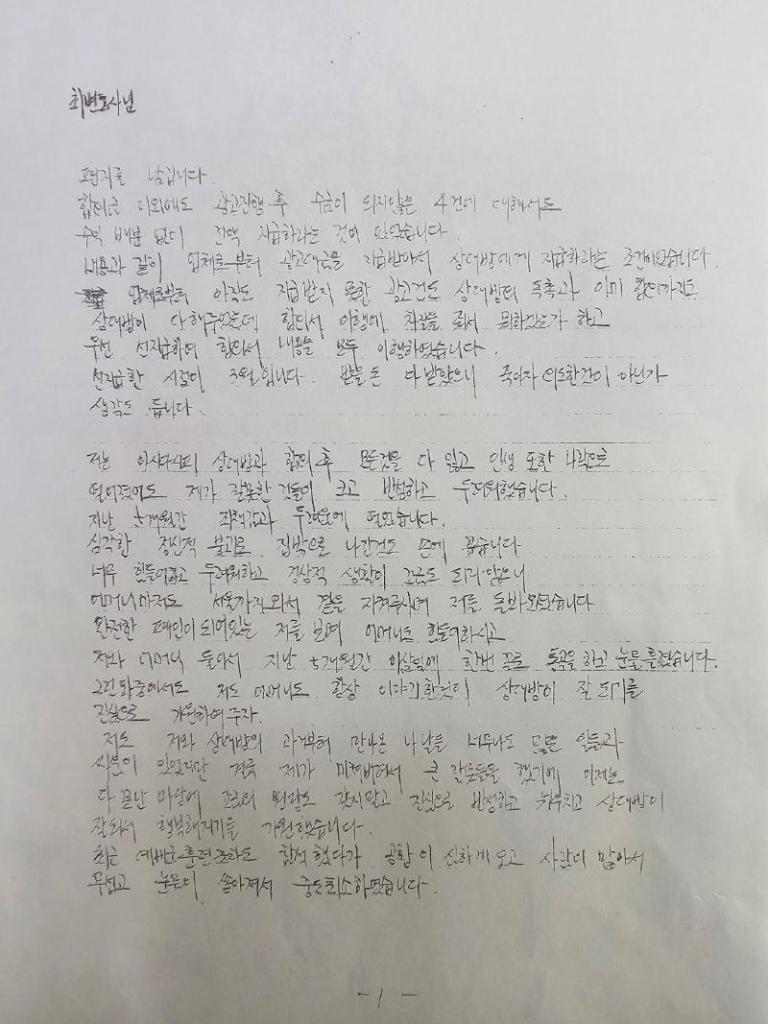 최변호사님
편지를 남깁니다.
합의금 이외에도 광고진행 후 수금이 되지않은 4건에 대해서도
수익 배분 없이 전액 지급하라는 것이 있었습니다.
내용과 같이 업체로부터 광고대금을 지급받아서 상대방에게 지급하라는 조건이었습니다.
업체로부터 아직도 지급받지 못한 광고건도 상대방의 독촉과 이미 합의가지도
상대방이 다 해주었는데 합의서 이행에 차질을 줘서 뭐하겠는가 하고
우선 선지급하여 합의서 내용을 모두 이행하였습니다.
선지급한 시점이 3월입니다. 받을 돈 다 받았으니 죽이자 의도한건이 아닌가
생각도 듭니다.
저는 아시다시피 상대방과 합의 후 모든것을 다 잃고 인생 또한 나락으로
떨어졌어도 제가 잘못한 것들이 크고 반성하고 두려워했습니다.
지난 5개월간 죄책감과 두려움에 떨었습니다.
심각한 정신적 붕괴로 집밖으로 나간것도 손에 꼽습니다
너무 힘들어하고 두려워하고 정상적 생활이 조금도 되지 않으니
어머니마저도 서울까지 와서 곁을 지켜주시며 저를 돌봐왔습니다
완전한 폐인이 되어있는 저를 보며 어머니도 힘들어하시고
저와 어머니 둘아서 지난 5개월간 이삼일에 한번 꼴로 통곡을 하고 눈물을 흘렸습니다.
그런 와중에서도 저도 어머니도 항상 이야기한것이 상대방이 잘 되기를
진심으로 기원하여주자.
저도 저와 상대방의 과거부터 만나온 나날들 너무나도 많은 일들과
사연이 있었지만 결국 제가 미쳐버려서 큰 잘못들을 했기에 이제는
다 끝난 마당에 조금의 원망도 갖지말고 진심으로 반성하고 뉘우치고 상대방이
잘되서 행복해지기를 기원했습니다.
최근 예비군 훈련조차도 참석했다가 공황이 심하게 오고 사람이 많아서
무섭고 눈물이 쏟아져서 중도퇴소하였습니다.
- 1 -